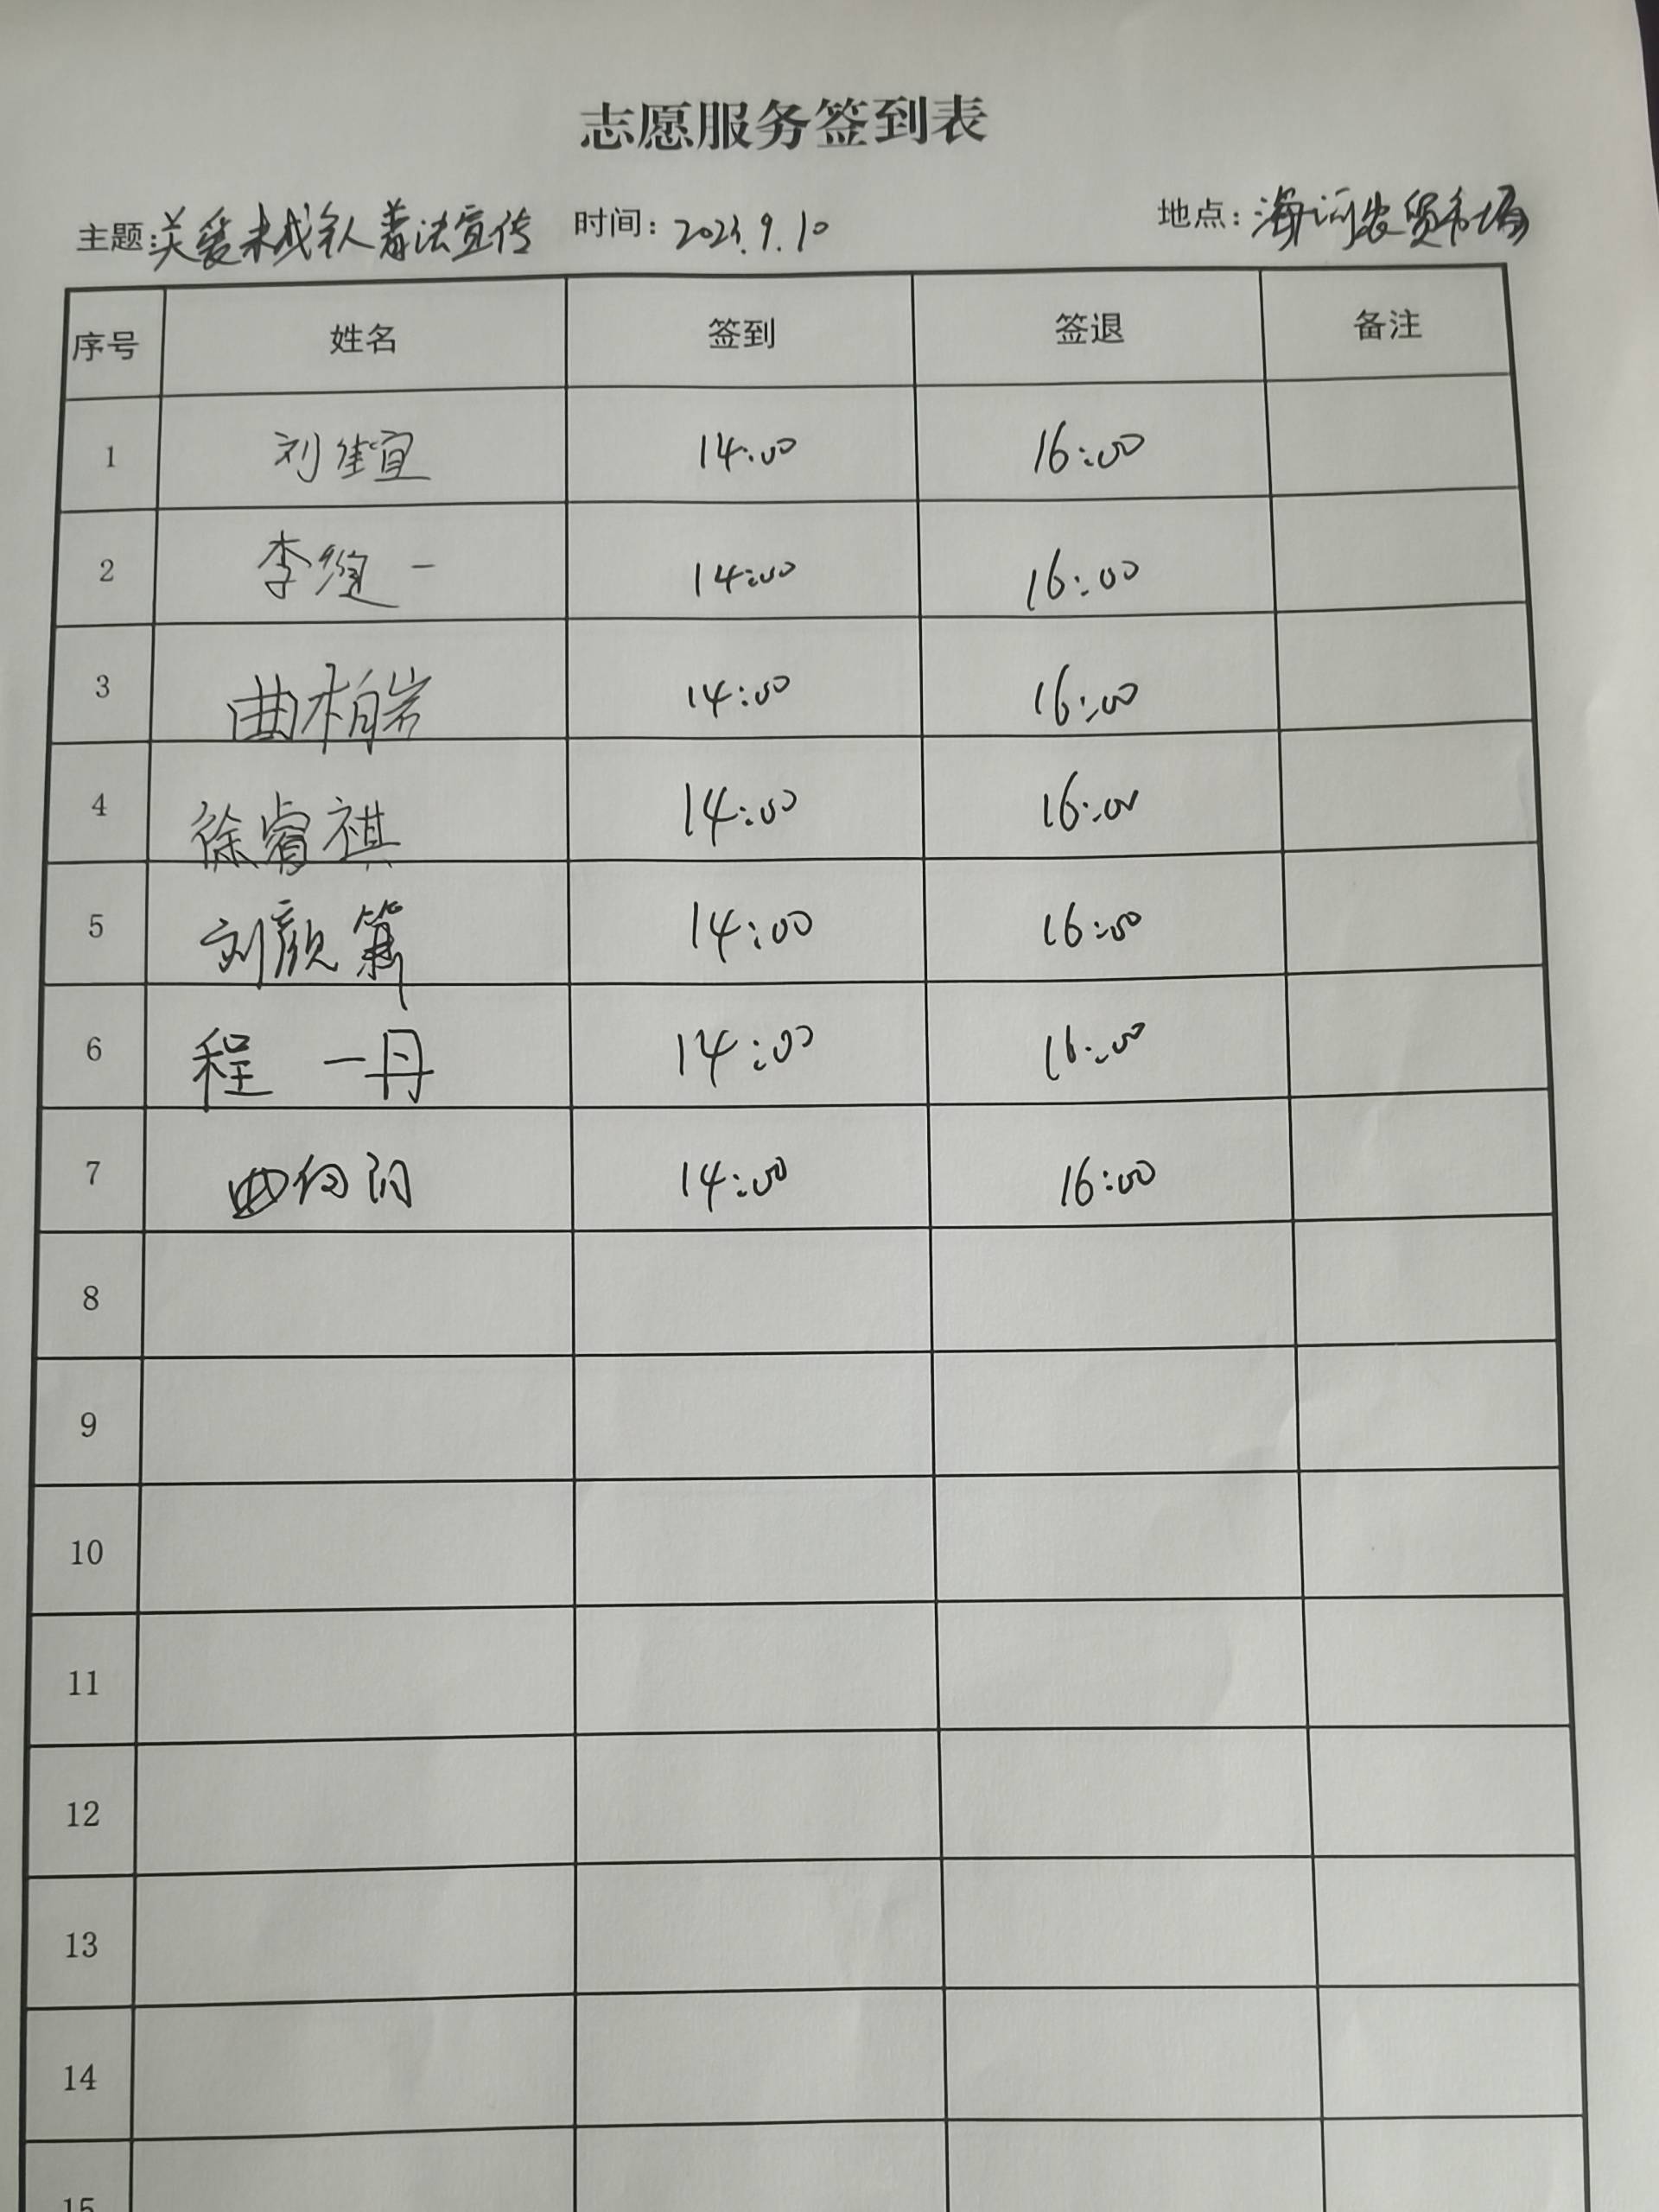 志愿服务签到表
主题:关爱未成年人普法宣传 时间:2023.9.10 地点:海河农贸市场
序号 姓名 签到 签退 备注
1 刘佳宜 14:00 16:00
2 李 一 14:00 16:00
3 曲柏岩 14:00 16:00
4 徐睿祺 14:00 16:00
5 刘颜 14:00 16:00
6 程一丹 14:00 16:00
7 曲向阳 14:00 16:00
8
9
10
11
12
13
14
15